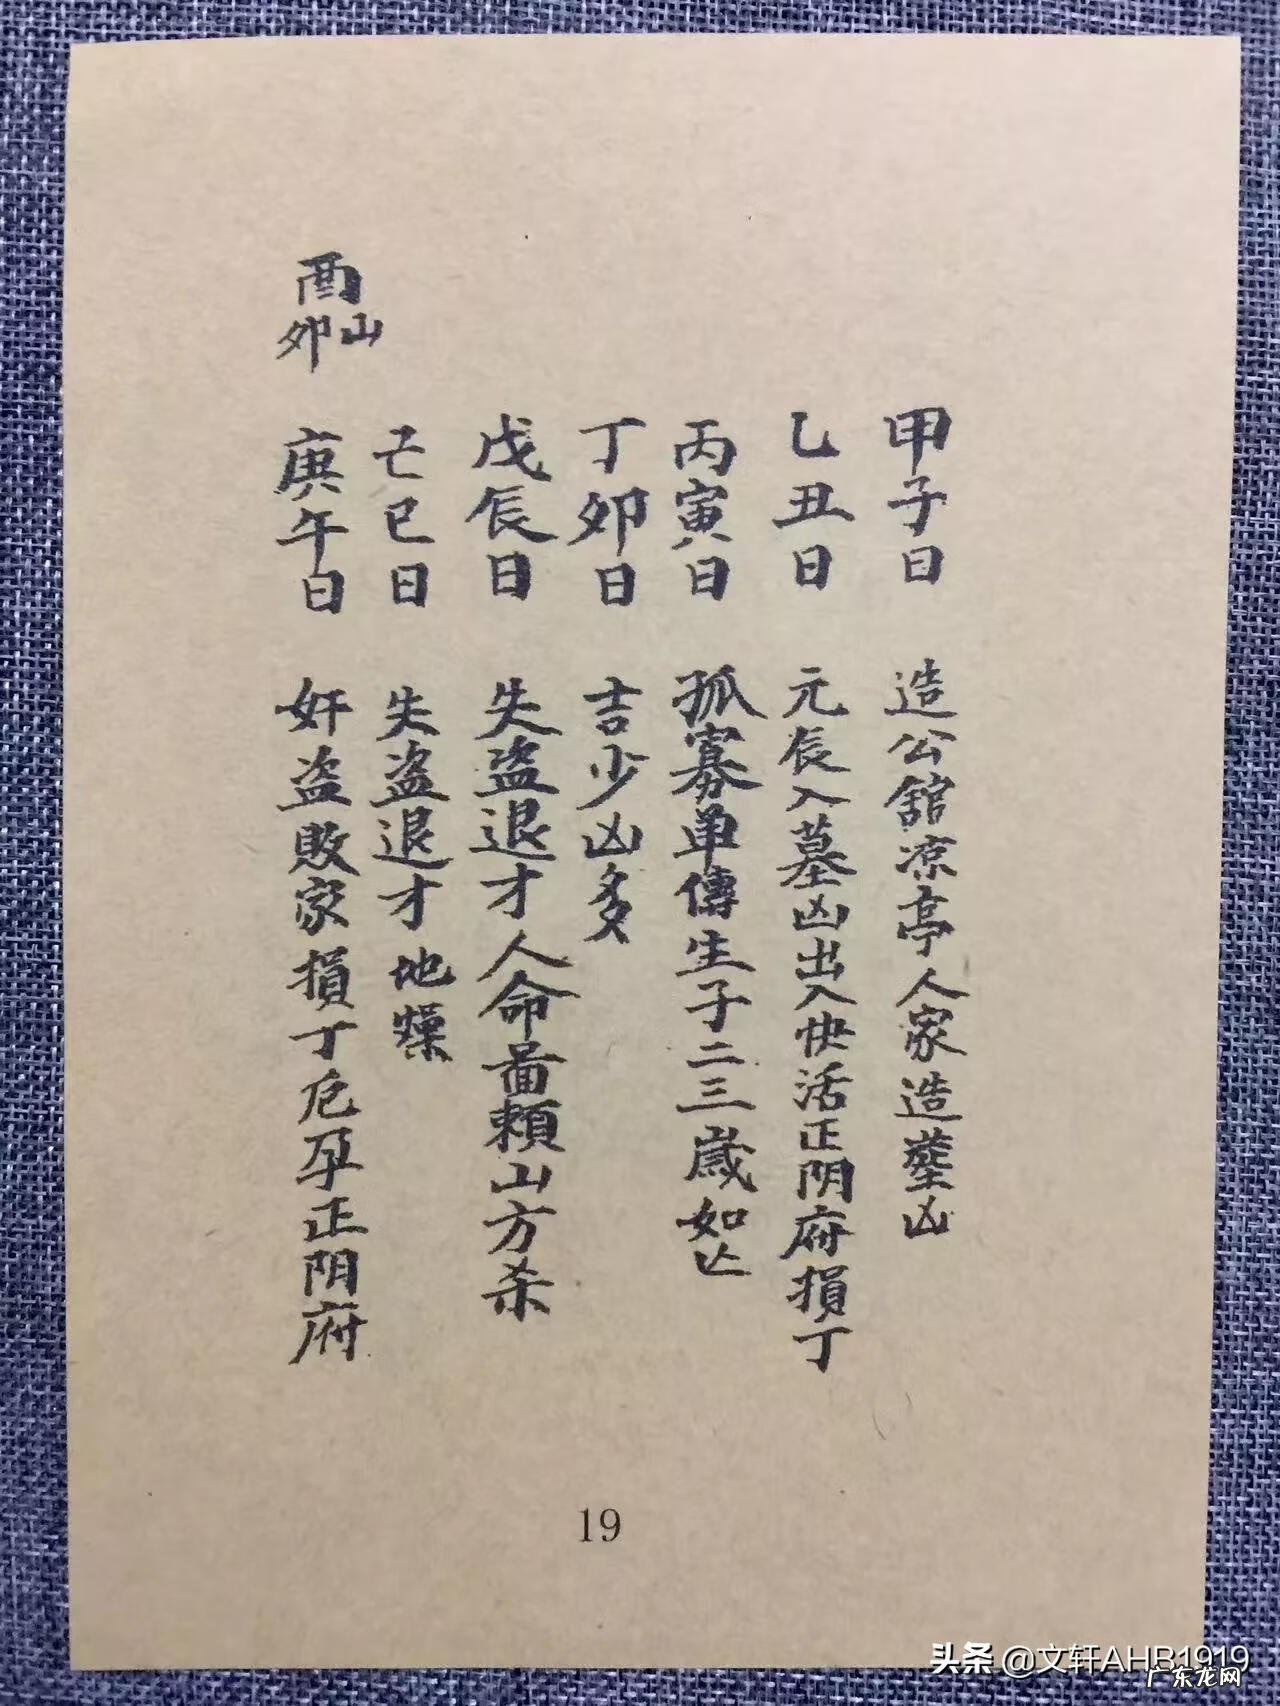 甲子日 造公舘凉亭人家造塟凶
乙丑日 元辰入墓凶出入快活正阴府損丁
丙寅日 孤寡单傳生子二三歲如亡
丁卯日 吉少凶多
戊辰日 失盗退才人命啚賴山方杀
己巳日 失盗退才地燥
酉卯山
庚午日 奸盗敗家損丁卮孕正阴府
19
头条 @文轩AHB1919
广东龙网